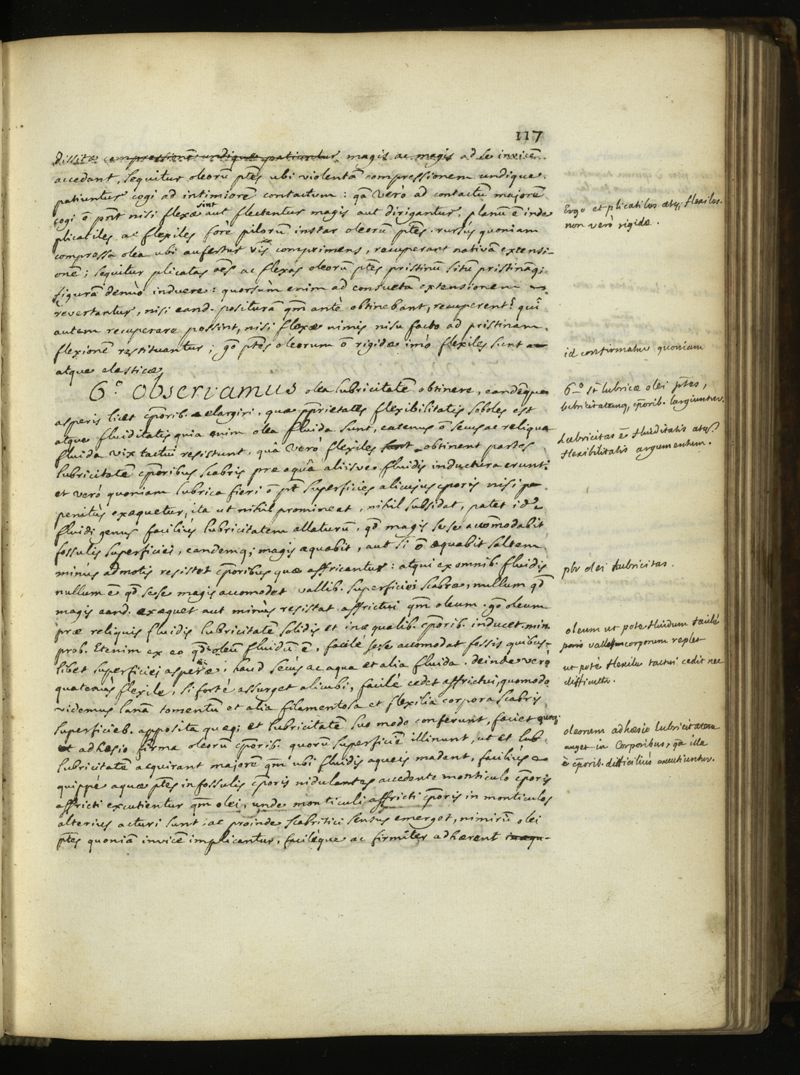 117
magis ac magis ad se invicē
accedant, sequitur oleorū ptēs ubi violentā compressionem undique
patiuntur cogi ad intimiorē contactum: qā verò ad contactū majorē
cogi ō pōnt nisi flexæ sint aut flectentur magis aut dirigantur, planū ē inde
plicatiles ac flexiles fore pilorū instar oleorū ptēs. rursùs quoniam
compressa olea ubi aufertur vis comprimens, recuperant nativā extensi-
onē; sequitur plicatas oēs ac flexas oleorū ptēs pristinū sitū pristināq;
figurā denùo induere: quorsùm enim ad consueta extensionem
revertantur, nisi eand. positurā qm̄ antè obtinebant, recuperent? quî
autem recuperare possint, nisi flexæ nimis nisu facto ad pristinam
flexionē restituantur; gō ptēs oleorum ō rigidæ imò flexiles sunt
atque elasticæ
Ergo et plicatiles atq; flexiles
non verò rigidæ.
id confirmatur quoniam
6.º Observamus olea lubricitatē obtinere, eandēque
asperis licèt cp̄orib. elargiri. quæ pp̄rietates flexibilitatis soboles est
atque fluiditatis quia enim olea fluida sunt, eatenus ō secus ac reliqua
fluida vix tactui resistunt, quà verò flexiles obtinent partes
lubricitatē cp̄oribus scabris præ aquâ aliisve fluidis inductura erunt:
et verò quoniam lubrica fieri ō pt̄ superficies alicujus cp̄oris nisi
penitùs exæquetur, ita ut nihil promineat, nihil subsidat, patet id
fluidi genus faciliùs lubricitatem allaturū, qd̄ magis sese accomodabit
fossulis superficiei, eandemq; magis æquabit, aut si ō æquabit saltem
minùs admotis resistet cp̄oribus quæ affricantur: atqui ex omnib. fluidis
nullum ē qd̄ sese magis accomodet vallib. superficiei scabræ, nullum qd̄
magis eand. exæquet aut minùs resistat affrictui qm̄ oleum. gō oleum
præ reliquis fluidis lubricitatē solidis et inæqualib. cp̄orib. inducet. min.
prob. Etenim ex eo qd̄ oleū fluidū ē, facilè sese acomodat fossis quibus-
libet superficiei asperæ, haud secùs ac aqua et alia fluida. deinde verò
quatenus flexile, si fortè assurget alicubi, facilè cedet affrictui, quomodo
videmus lanā tomentū et alia filamentosa et flexilia corpora scabris
superficieb. apposita quæq; et lubricitatē suo modo conferunt, faciet
adhæsio firma oleorū cp̄orib. quorū superficiē illinunt, ut et lub-
lubricitatē acquirant majorē qm̄ ubi fluidis aqueis madent, faciliùs
quippè aquæ ptēs in fossulis cp̄oris nidulantes accedente monticulo cp̄oris
affricti excutientur qm̄ olei, unde monticuli affricti cp̄oris in monticulos
alterius acturi sunt, ac proinde scabritiei sensus emerget, nimirū olei
ptēs quoniā invicē implicantur, facilèque ac firmiter adhærent
6.º st̄ lubricæ olei ptēs,
lubricitatemq; cp̄orib. largiuntur.
Lubricitas ē fluiditatis atq;
flexibilitatis argumentum.
pbr olei lubricitas.
oleum ut pote fluidum facilè
valles corporum replet
ut potè flexile tactui cedit nec
difficulter.
oleorum adhæsio lubricitatem
auget in Corporibus, qā illa
è cp̄orib. difficiliùs excutiuntur.